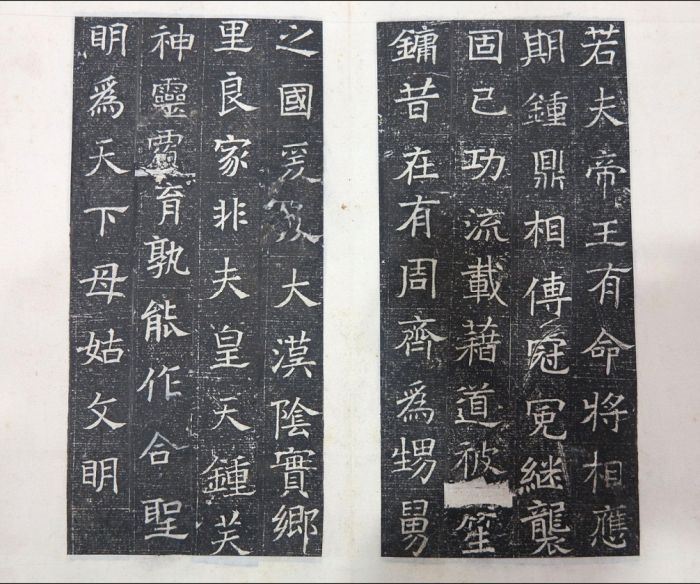 若夫帝王有命將相應
期鍾鼎相傳冠冕継襲
固已功流載藉道被笙
鏞昔在有周齊爲甥舅
之國爰大漢陰實鄉
里良家非夫皇天鍾美
神靈育孰能作合聖
明爲天下母姑文明